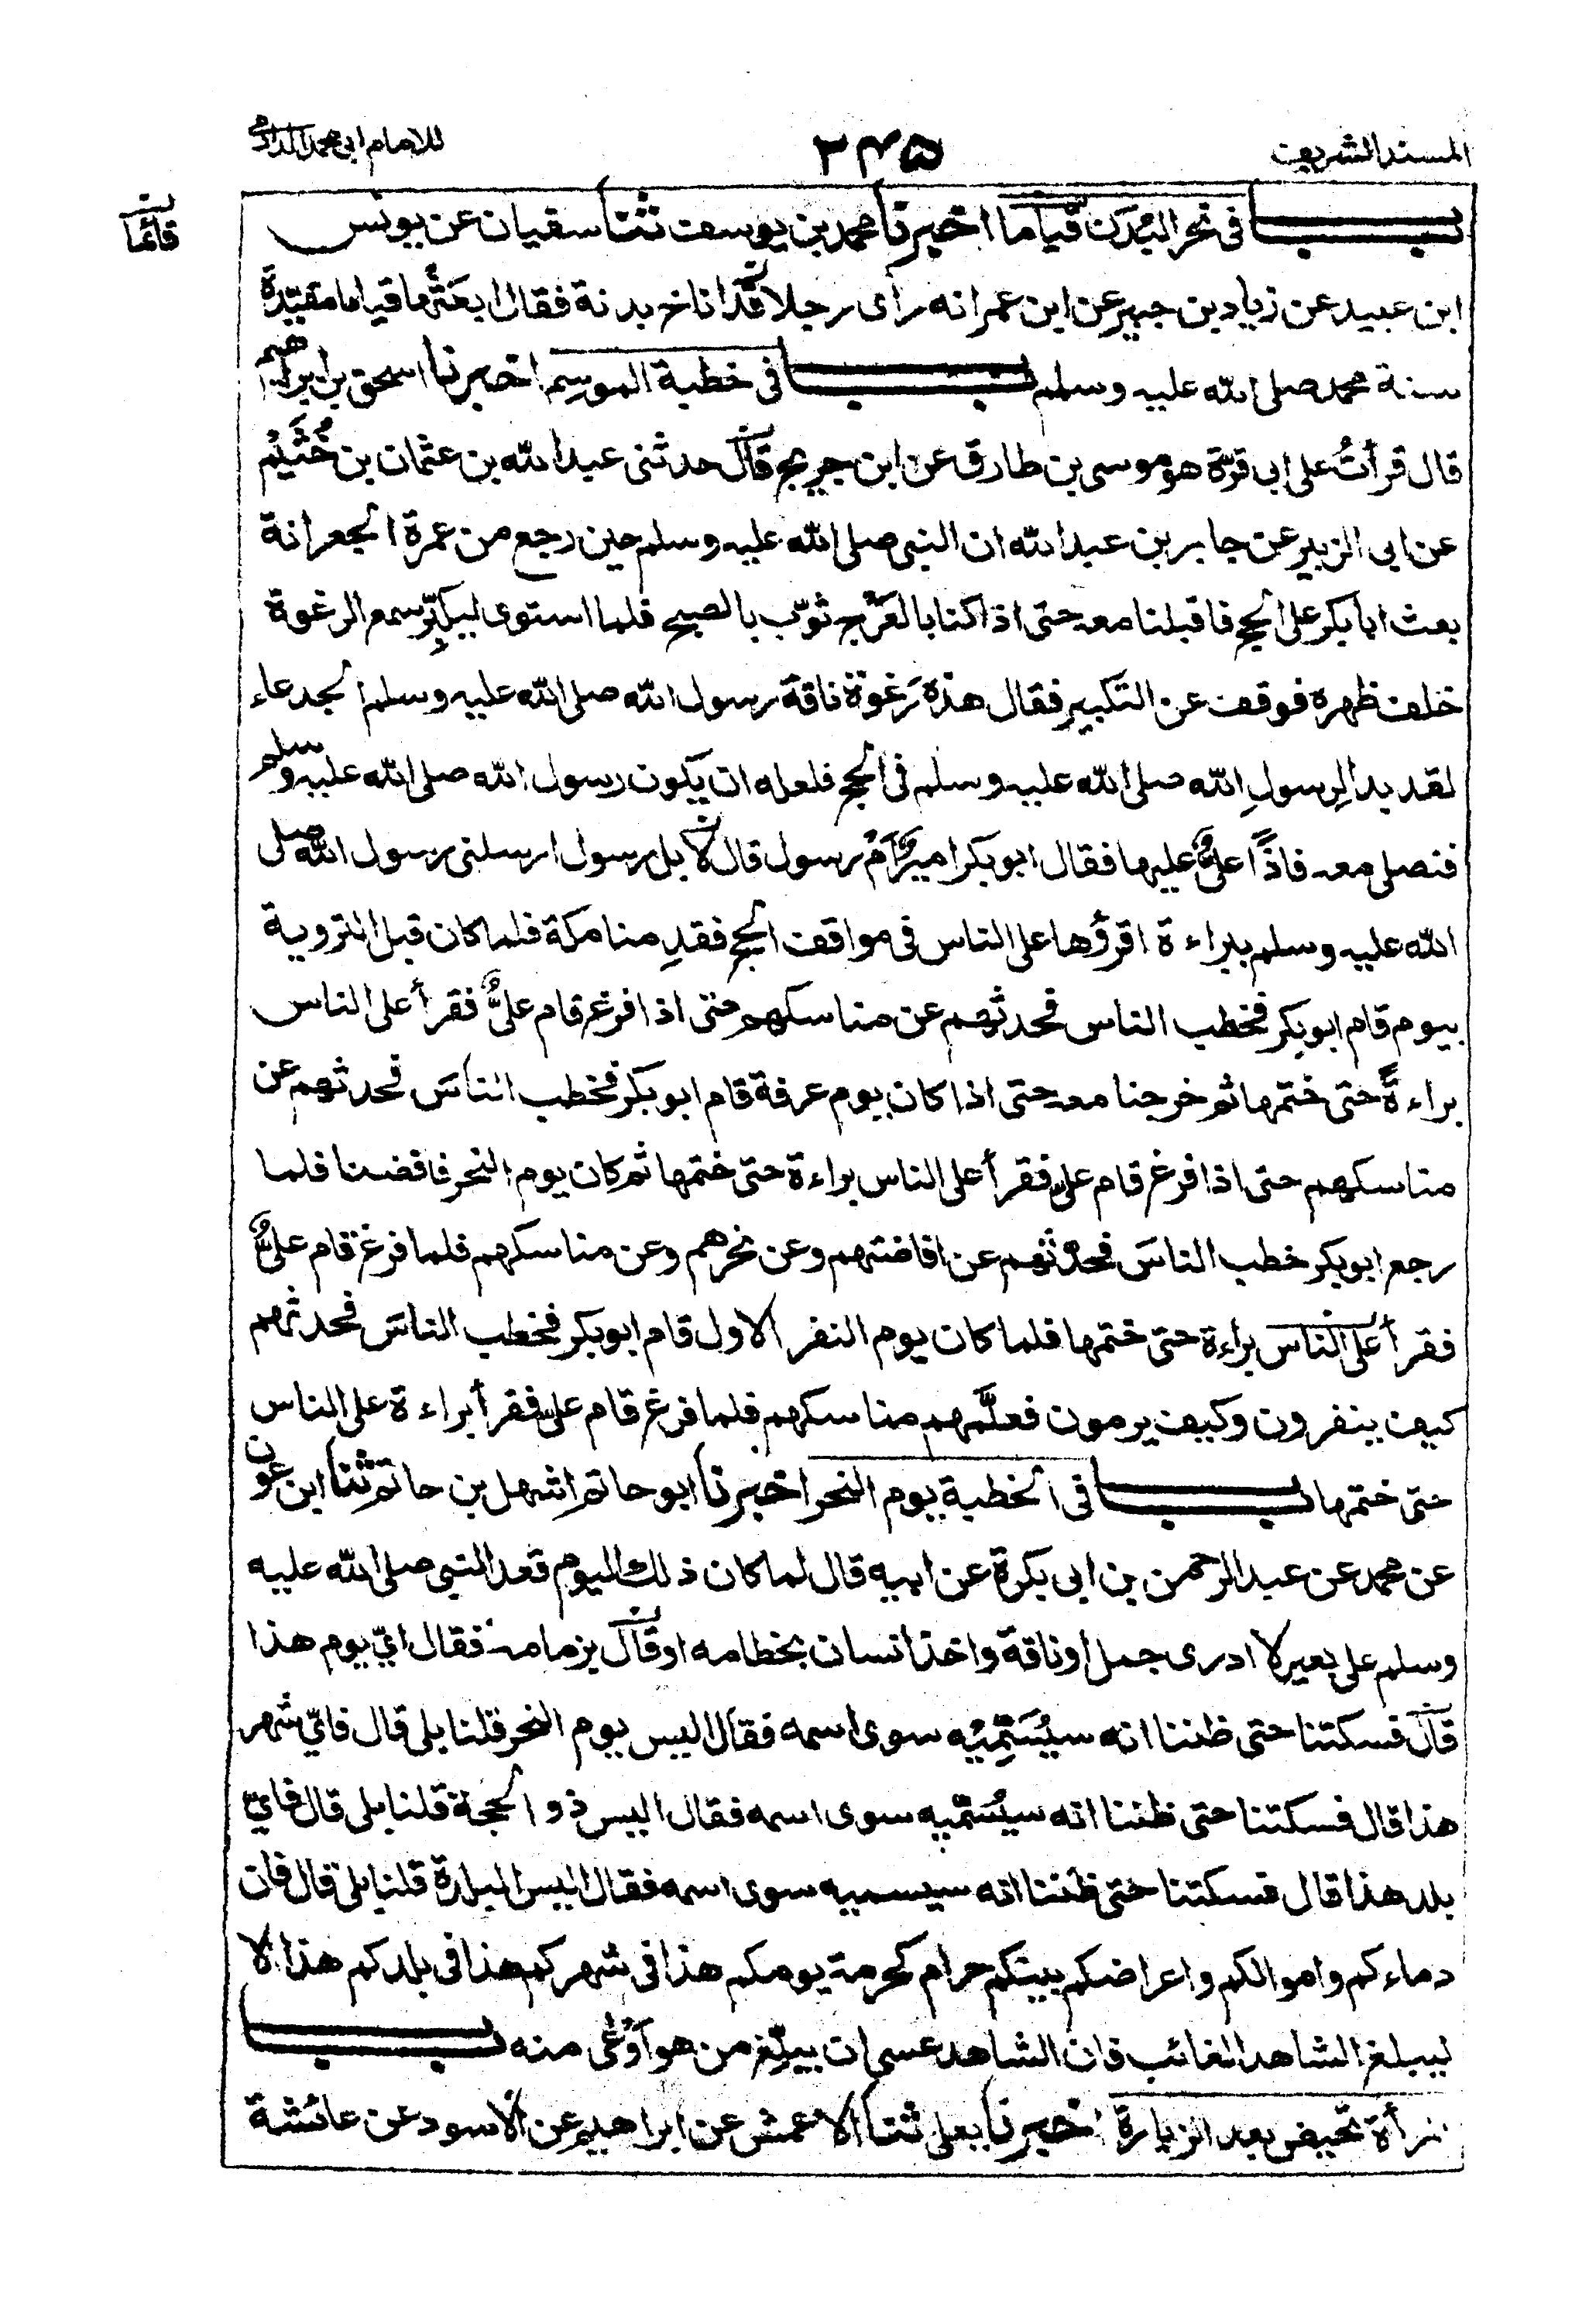 المسند الشريف ٢٤٥ للامام ابى محمد الدارمى
بــاب فى نحر البُدن قياما اخبرنا محمد بن يوسف ثنا سفيان عن يونس
قائما
ابن عبيد عن زياد بن جبير عن ابن عمر انه رأى رجلا قد اناخ بدنة فقال ابعثها قياما مقيّدةً
سنة محمد صلى الله عليه وسلم بــاب فى خطبة الموسِم اخبرنا اسحق بن ابراهيم
قال قرأتُ على ابى قرّة هو موسى بن طارق عن ابن جريج قال حدثنى عبد الله بن عثمان بن خُثَيْم
عن ابى الزبير عن جابر بن عبد الله ان النبى صلى الله عليه وسلم حين رجع من عمرة الجعرانة
بعث ابا بكر على الحج فاقبلنا معه حتى اذا كنا بالعَرْج ثوّب بالصبح فلما استوى ليكبّر سمع الرغوة
خلف ظهره فوقف عن التكبير فقال هذه رَغوة ناقة رسول الله صلى الله عليه وسلم الجدعاء
لقد بدا لِرسولِ الله صلى الله عليه وسلم فى الحج فلعله ان يكون رسول الله صلى الله عليه وسلم
فنصلى معه فاذًا علىٌّ عليها فقال ابو بكر اميرٌ اَمْ رسول قال لا بل رسول ارسلنى رسول الله صلى
الله عليه وسلم ببراءة اقرؤها على الناس فى مواقف الحج فقدِمنا مكة فلما كان قبل التروية
بيوم قام ابو بكر فخطب الناس فحدثهم عن مناسكهم حتى اذا فرغ قام علىٌّ فقرأ على الناس
براءةً حتى ختمها ثم خرجنا معه حتى اذا كان يوم عرفة قام ابو بكر فخطب الناسَ فحدثهم عن
مناسكهم حتى اذا فرغ قام علىّ فقرأ على الناس براءة حتى ختمها ثم كان يوم النحر فافضنا فلما
رجع ابو بكر خطب الناسَ فحدّثهم عن افاضتهم وعن نحرهم وعن مناسكهم فلما فرغ قام علىٌّ
فقرأ على الناس براءة حتى ختمها فلما كان يوم النفر الاول قام ابو بكر فخطب الناسَ فحدثهم
كيف ينفرون وكيف يرمون فعلّمهم مناسكهم فلما فرغ قام علىّ فقرأ براءة على الناس
حتى ختمها بــاب فى الخطبة يوم النحر اخبرنا ابو حاتم اشهل بن حاتم ثنا ابن عون
عن محمد عن عبد الرحمن بن ابى بكرة عن ابيه قال لما كان ذلك اليوم قعد النبى صلى الله عليه
وسلم على بعير لا ادرى جمل او ناقة واخذ انسان بخطامه او قال بزمامه فقال اىّ يوم هذا
قال فسكتنا حتى ظننا انه سيُسَمِّيْه سوى اسمه فقال اليس يوم النحر قلنا بلى قال فاىّ شهر
هذا قال فسكتنا حتى ظننا انه سيُسَمّيه سوى اسمه فقال اليس ذو الحجة قلنا بلى قال فاىّ
بلد هذا قال فسكتنا حتى ظننا انه سيسميه سوى اسمه فقال اليس البلدة قلنا بلى قال فان
دماءكم واموالكم واعراضكم بينكم حرام كحرمة يومكم هذا فى شهركم هذا فى بلدكم هذا الا
ليبلغ الشاهد الغائب فان الشاهد عسى ان يبلّغ من هو اَوْعٰى منه بــاب
المرأة تحيض بعد الزيارة اخبرنا يعلى ثنا الاعمش عن ابراهيم عن الاسود عن عائشة